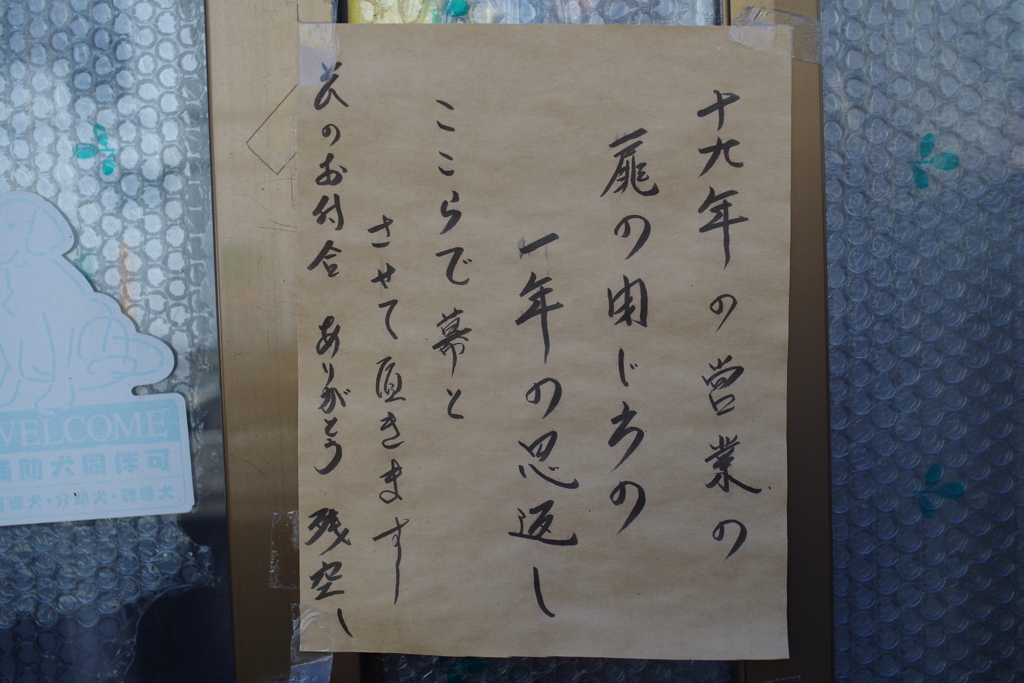 十九年の営業の
扉の じちの
一年の思返し
ここらで幕と
させて頂きます
のお付合 ありがとう 残空し
WELCOME
補助犬同伴可
導犬・介助犬・聴導犬